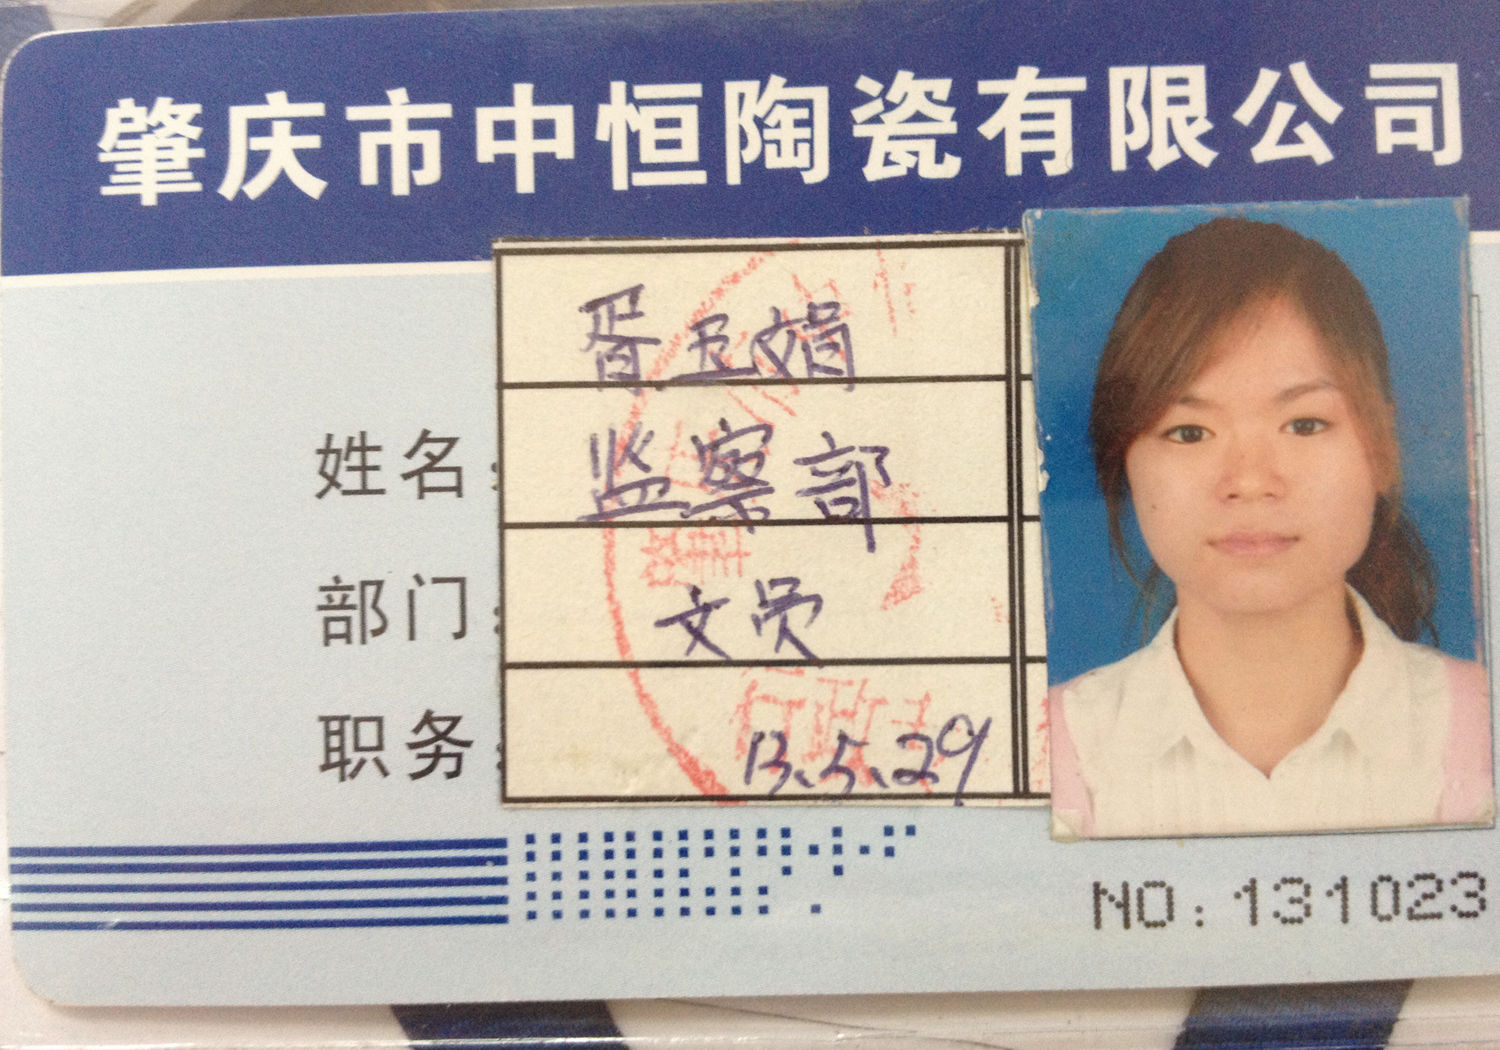 肇庆市中恒陶瓷有限公司
胥玉娟
姓名:
监察部
部门:
文员
职务:
13.5.29
行政
NO:131023